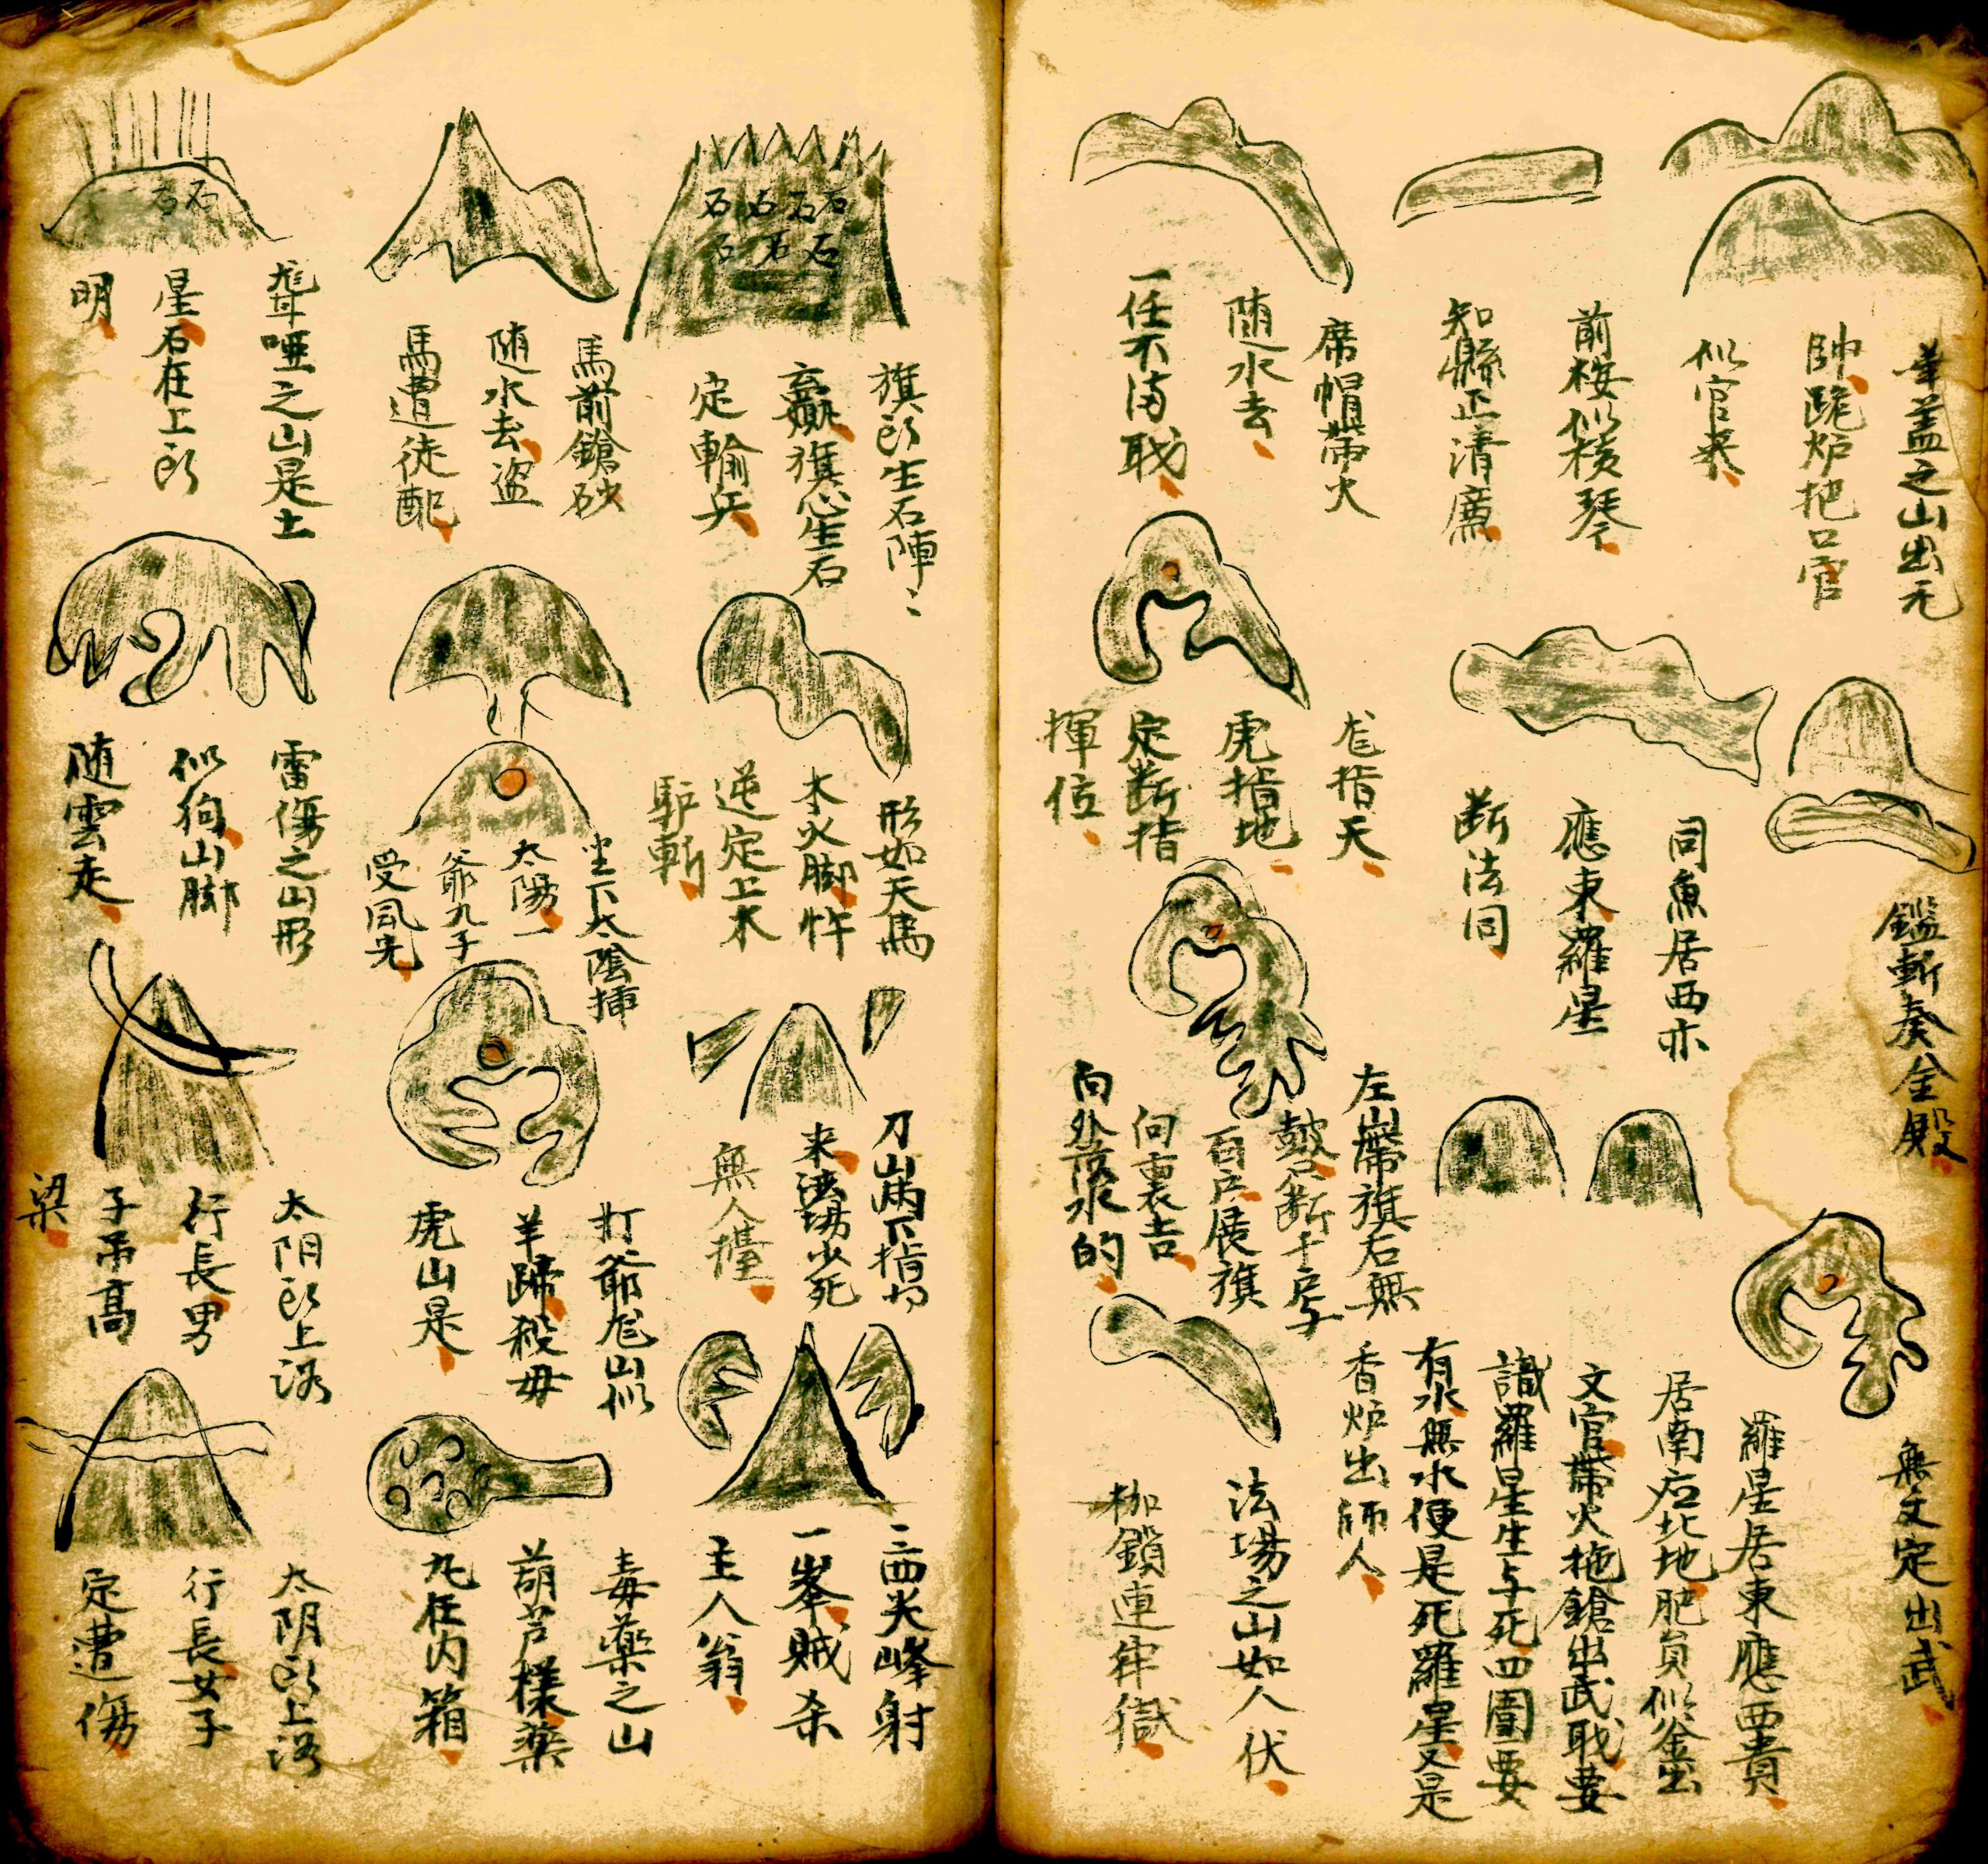 華盖之山出元
帥跪炉把口官
似官来
前桉似橫琴
知縣正清廉
席帽帶火
随水去
一任不滿職
鑑斬奏金殿
同魚居西亦
應東羅星
断法同
尨指天
虎指地
定断指
揮位
無文定出武
羅星居東應西貴
居南應北地肥員似釜出
文官帶火拖鎗出武職要
識羅星生与死四圍要
有水無水便是死羅星又是
香炉出師人
左山帶旗右無
鼓名断千户
百户展旗
向裏吉
向外落水的
法場之山如人伏
枷鎖連牢獄
旗形生石陣〻
贏旗心生石
定輸兵
馬前鎗砂
随水去盗
馬遭徒配
聾啞之山是土
星石在上形
明
形如天馬
木火脚忤
逆定上木
馿斬
坐下太陰揷
太陽一
爺九子
受風光
雷傷之山形
似狗山脚
随雲走
刀山两下指
来法場少死
無人擡
打爺尨山似
羊蹄殺母
虎山是
太阴形上落
行長男
子吊高
梁
二面尖峰射
一峯賊杀
主人翁
毒藥之山
葫芦樣藥
丸在内箱
太阴形上落
行長女子
定遭傷
石石石石
石石石
石石